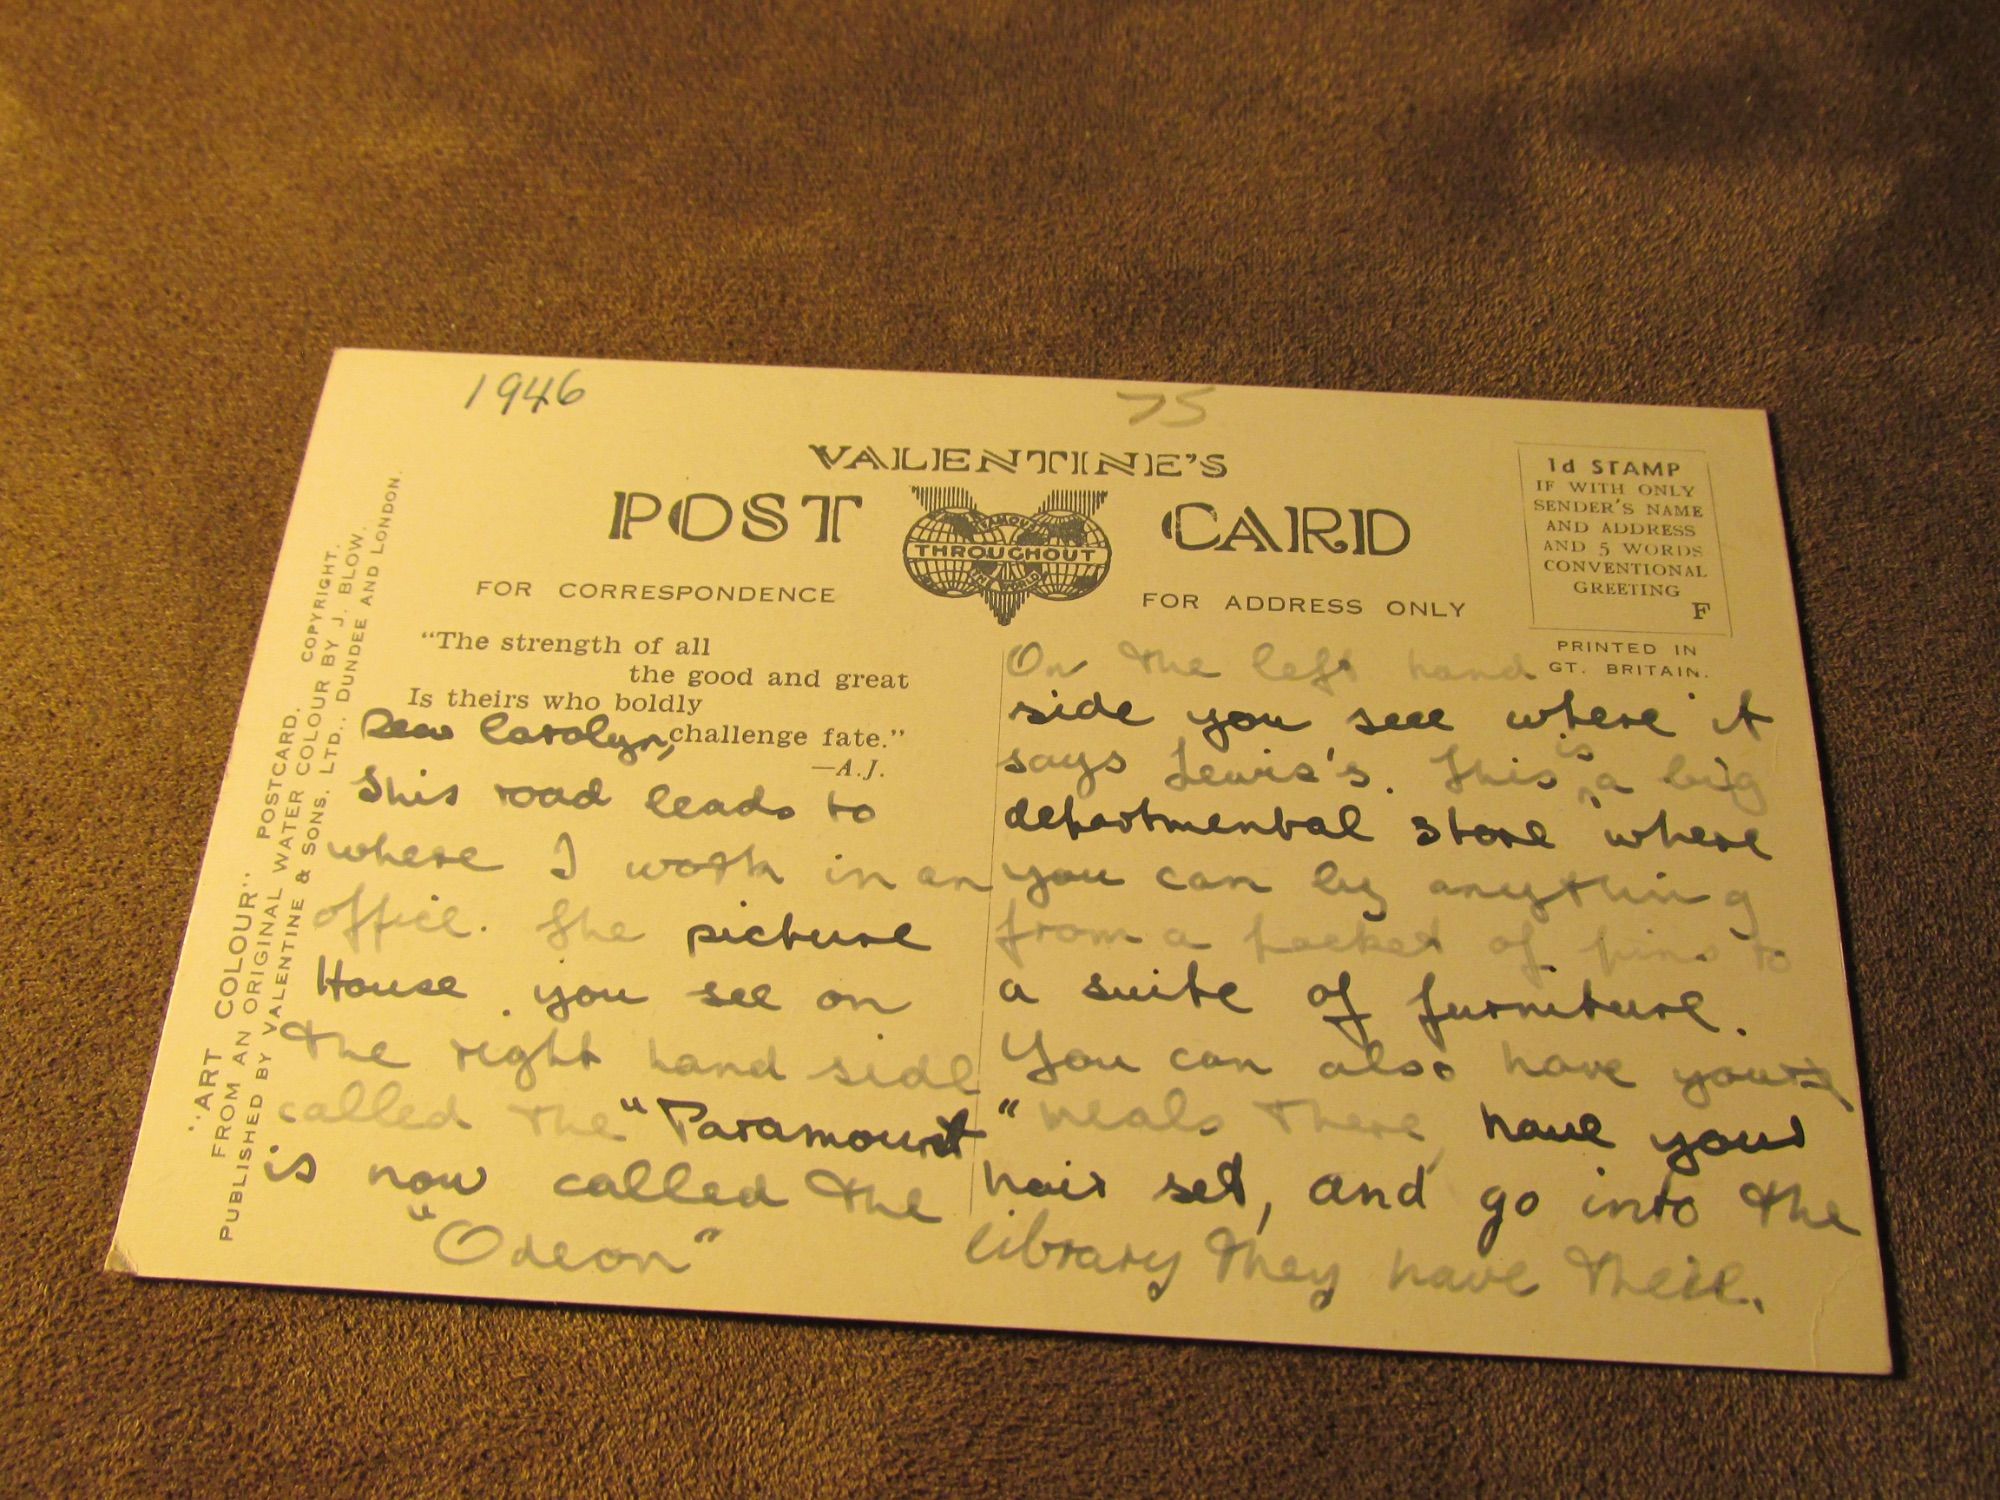 1946
75
VALENTINE'S
POST CARD
FAMOUS
THROUGHOUT
WORLD
FOR CORRESPONDENCE
FOR ADDRESS ONLY
1d STAMP
IF WITH ONLY
SENDER'S NAME
AND ADDRESS
AND 5 WORDS
CONVENTIONAL
GREETING
F
PRINTED IN
GT. BRITAIN.
"ART COLOUR" POSTCARD. COPYRIGHT.
FROM AN ORIGINAL WATER COLOUR BY J. BLOW.
PUBLISHED BY VALENTINE & SONS, LTD., DUNDEE AND LONDON.
"The strength of all
the good and great
Is theirs who boldly
challenge fate."
—A.J.
Dear Carolyn,
This road leads to
where I work in an
office. The picture
House you see on
the right hand side
called the "Paramount"
is now called the
"Odeon"
On the left hand
side you see where it
says Lewis's. This is a big
departmental store where
you can by anything
from a packet of pins to
a suite of furniture.
You can also have your
meals there, have your
hair set, and go into the
library they have there.